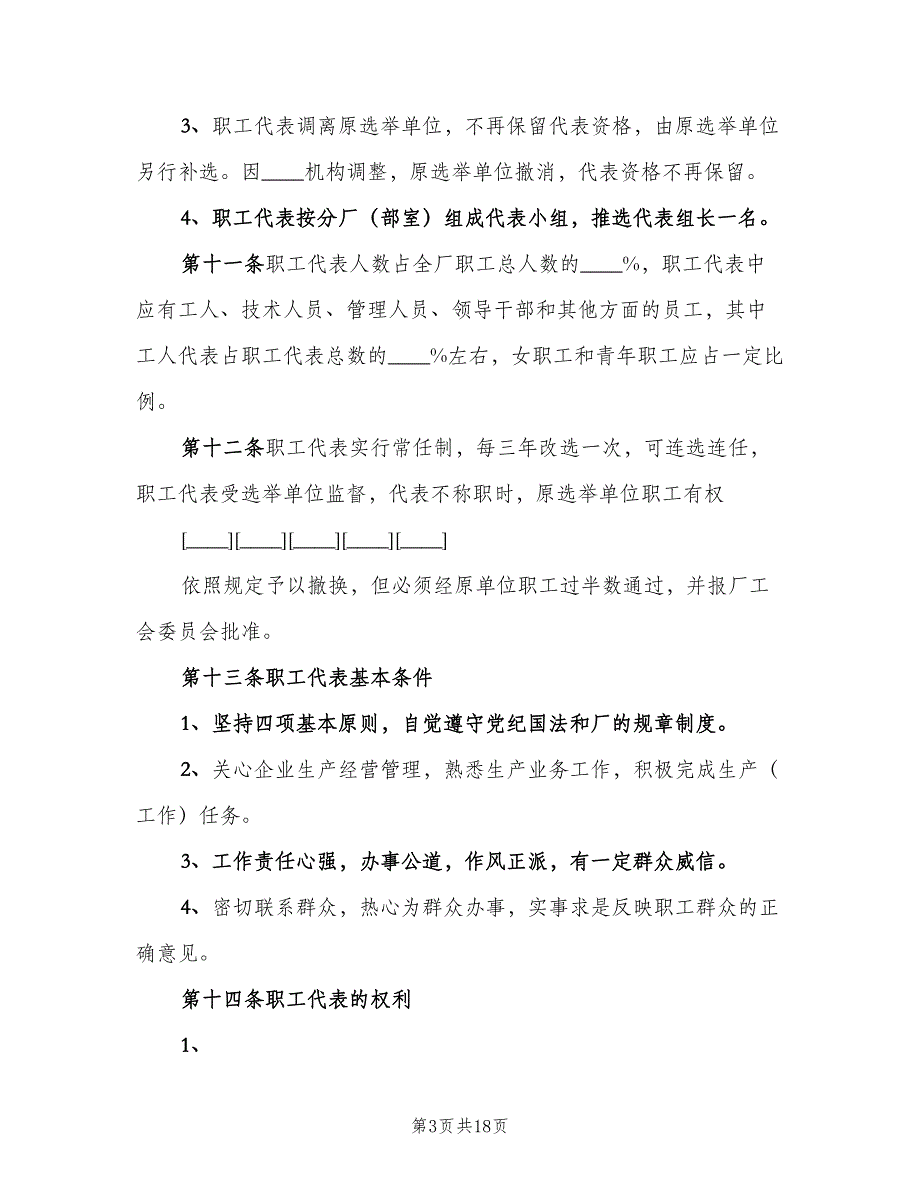 3、职工代表调离原选举单位，不再保留代表资格，由原选举单位
另行补选。因____机构调整，原选举单位撤消，代表资格不再保留。
4、职工代表按分厂（部室）组成代表小组，推选代表组长一名。
第十一条职工代表人数占全厂职工总人数的____%，职工代表中
应有工人、技术人员、管理人员、领导干部和其他方面的员工，其中
工人代表占职工代表总数的____%左右，女职工和青年职工应占一定比
例。
第十二条职工代表实行常任制，每三年改选一次，可连选连任，
职工代表受选举单位监督，代表不称职时，原选举单位职工有权
[____][____][____][____][____]
依照规定予以撤换，但必须经原单位职工过半数通过，并报厂工
会委员会批准。
第十三条职工代表基本条件
1、坚持四项基本原则，自觉遵守党纪国法和厂的规章制度。
2、关心企业生产经营管理，熟悉生产业务工作，积极完成生产（
工作）任务。
3、工作责任心强，办事公道，作风正派，有一定群众威信。
4、密切联系群众，热心为群众办事，实事求是反映职工群众的正
确意见。
第十四条职工代表的权利
1、
第3页共18页